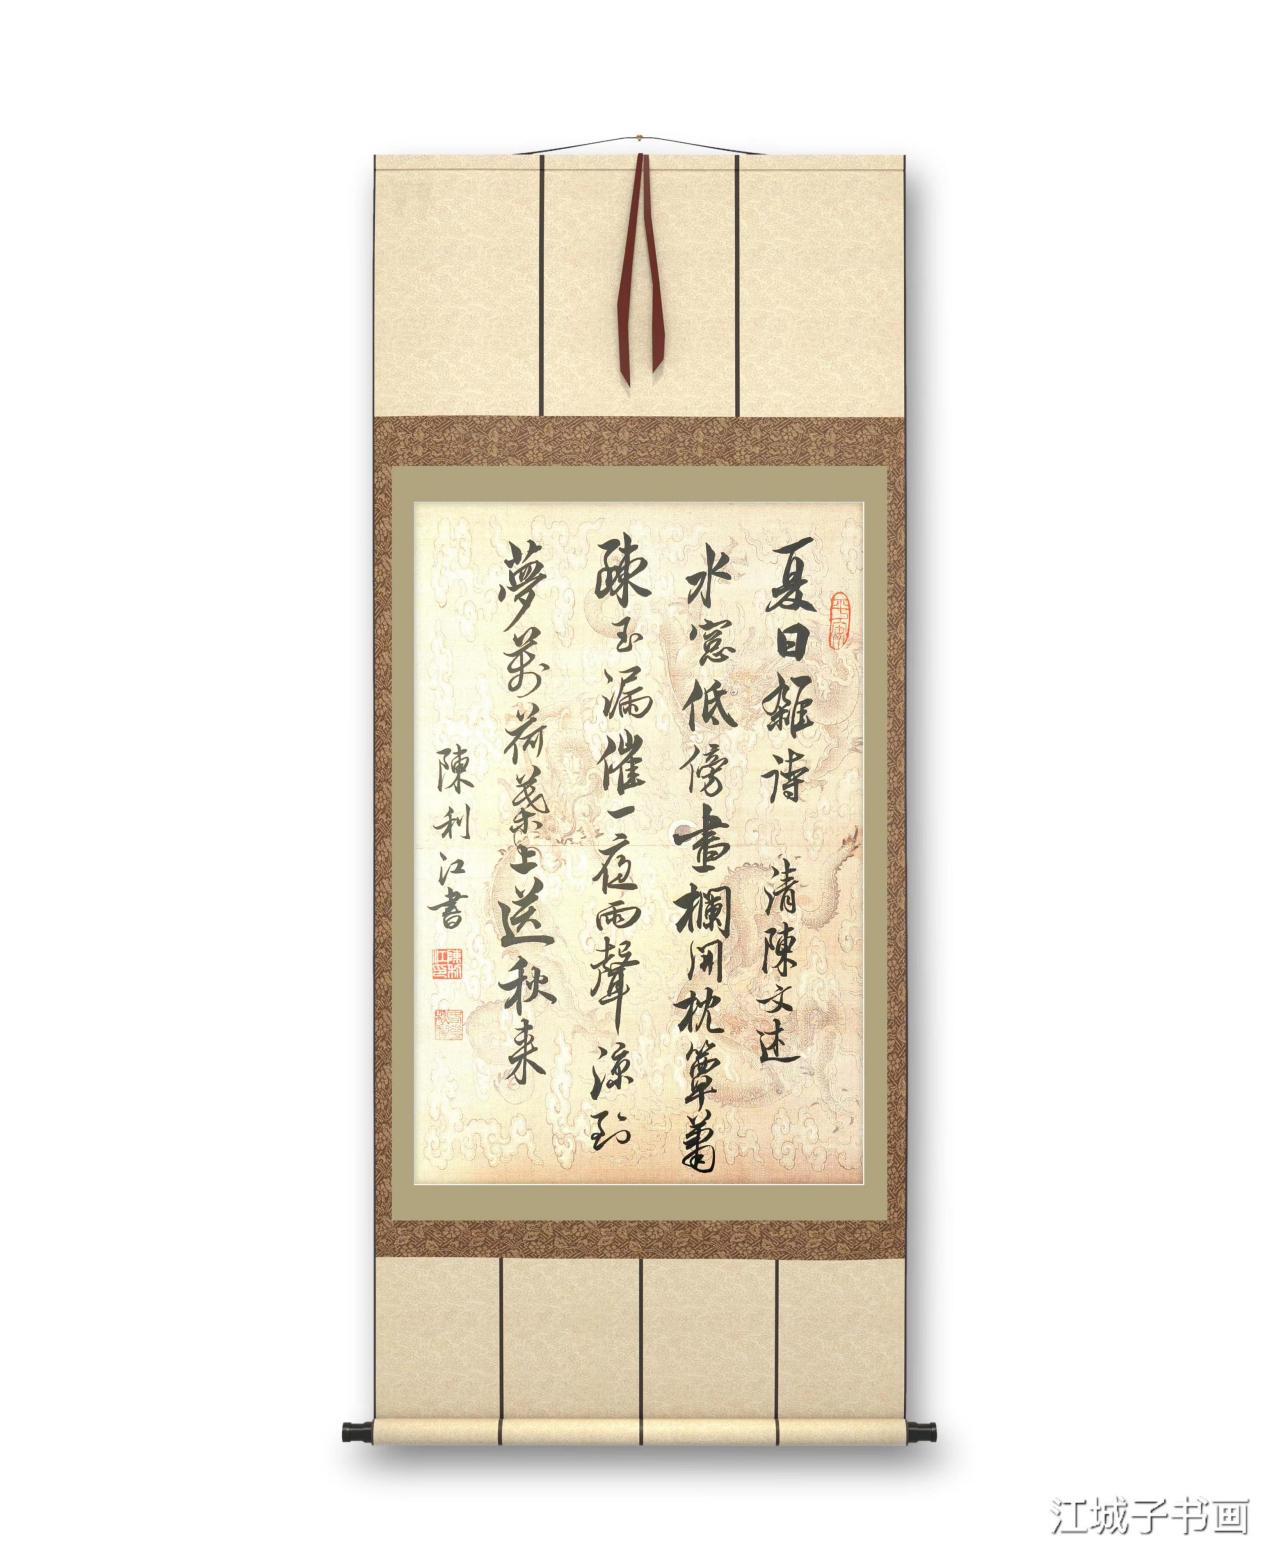 夏日雜詩 清陳文述
水窓低傍畫欄開枕簟蕭
疎玉漏催一夜雨聲凉到
夢萬荷葉上送秋来
陳利江書
江城子书画